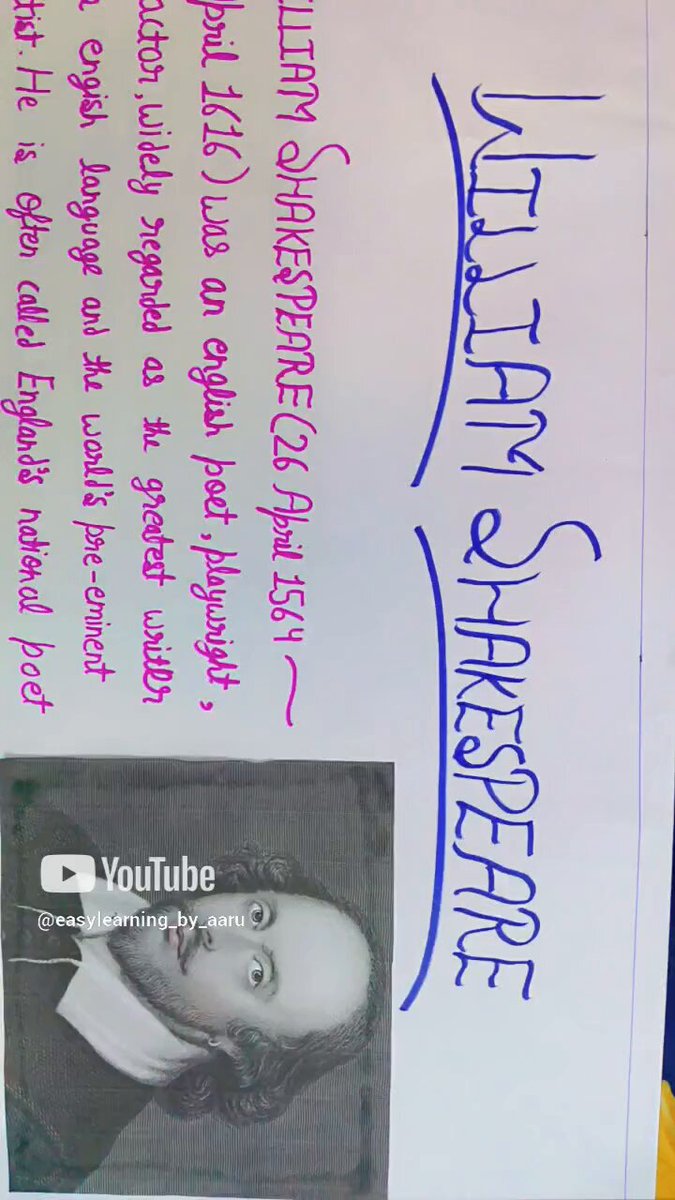 WILLIAM SHAKESPEARE
ILLIAM SHAKESPEARE (26 April 1564 —
pril 1616) was an english poet, playwright,
actor, widely regarded as the greatest writer
engish language and the world's pre-eminent
tist. He is often called England's national poet
YouTube
@easylearning_by_aaru